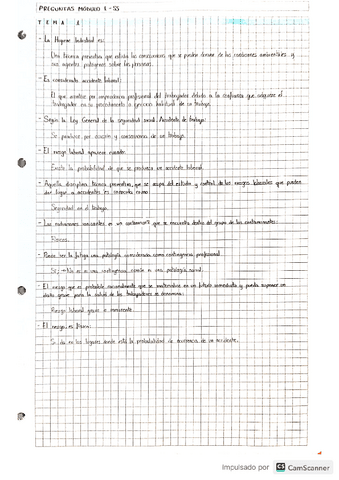 PREGUNTAS MÓDULO 1 - SS
TEMA 1
- La Higiene Industrial es:
Una técnica preventiva que estudia las consecuencias que se pueden derivar de las condiciones ambientales y
sus agentes patógenos sobre las personas.
- Es considerado accidente laboral:
El que acontece por imprudencia profesional del trabajador debido a la confianza que adquiere el
trabajador en su procedimiento o ejercicio habitual de su trabajo.
- Según la Ley General de la seguridad social. Accidente de trabajo:
Se produce por ocasión y consecuencia de un trabajo.
- El riesgo laboral aparece cuando:
Existe la probabilidad de que se produzca un accidente laboral.
- Aquella disciplina técnica preventiva, que se ocupa del estudio y control de los riesgos laborales que pueden
dar lugar a accidentes es conocida como:
Seguridad en el trabajo.
- Las radiaciones ionizantes es un contaminante que se encuentra dentro del grupo de los contaminantes:
Físicos.
- Puede ser la fatiga una patología considerada como contingencia profesional:
Sí, No es una contingencia común ni una patología
- El riesgo que es probable racionalmente que se materialice en un futuro inmediato y pueda suponer un
daño grave para la salud de los trabajadores se denomina:
Riesgo laboral grave e inminente.
- El riesgo es físico:
Se da en los lugares donde está la probabilidad de ocurrencia de un accidente.
Impulsado por CS CamScanner